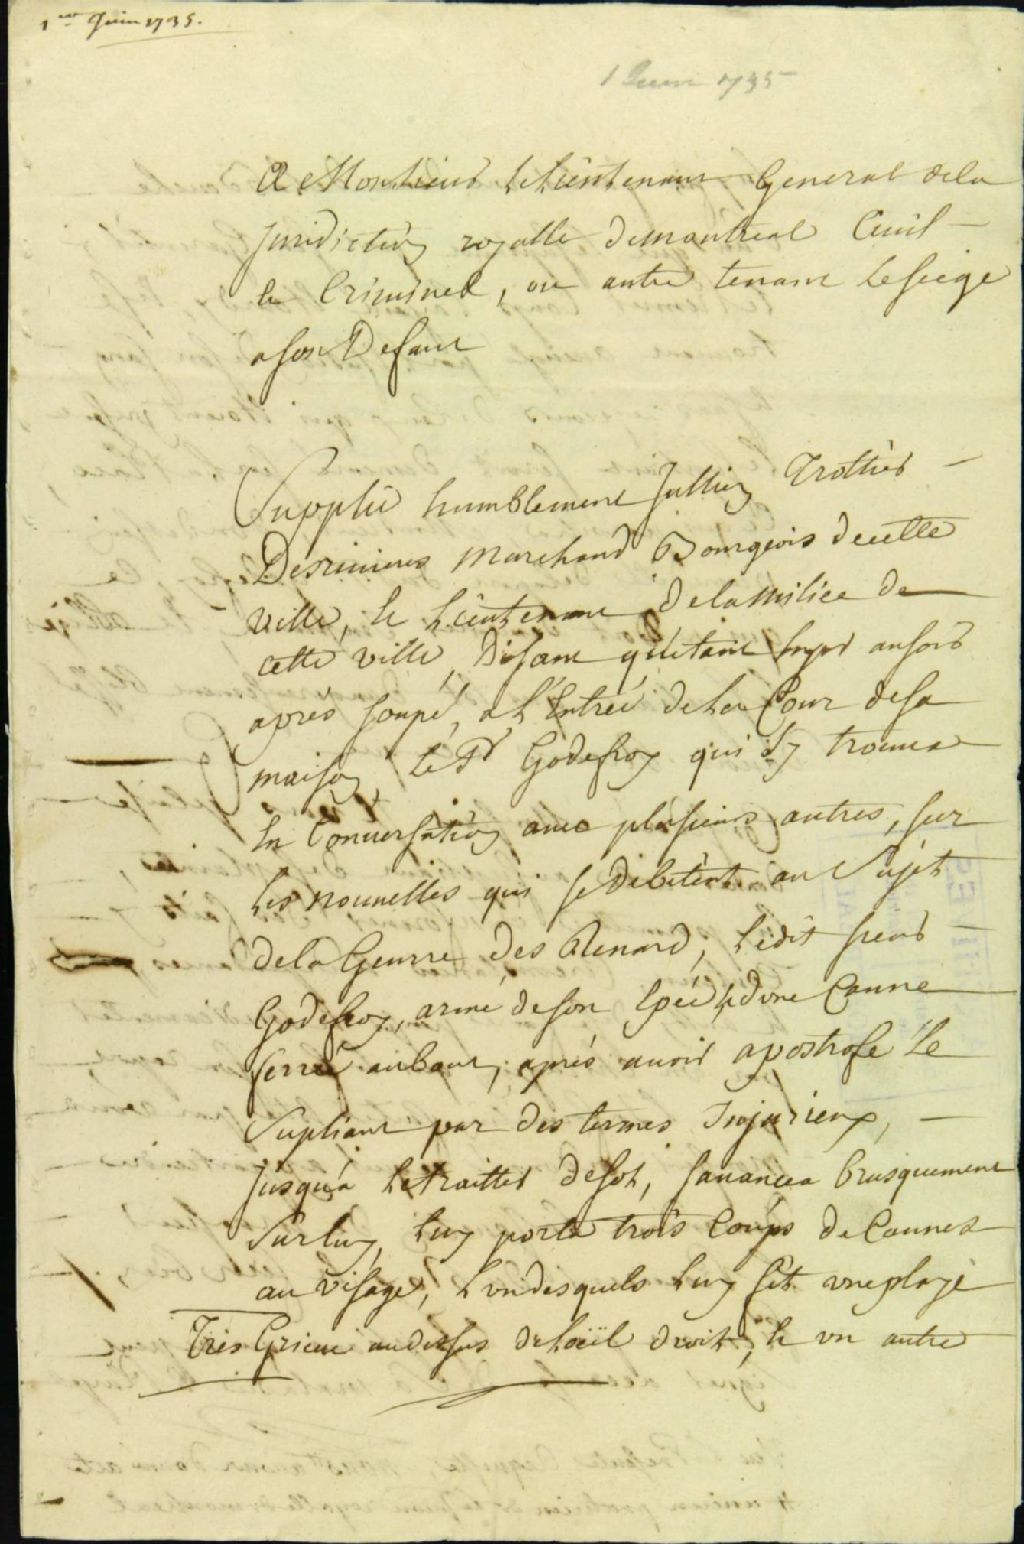 1er Juin 1735.
1 Juin 1735
A Monsieur le Lieutenant General de la
Juridiction royalle de montreal Civil
et Criminel, ou autre tenant le siege
a son Defaut
Supplie humblement Jullien Trottier
Desrivieres Marchand Bourgeois de cette
ville, et Lieutenant de la milice de
cette ville, Disant qu'étant hyer au soir
aprés soupé, a l'Entrée de la Cour de sa
maison, le Sr Godefroy qui s'y trouva
En Conversation avec plusieurs autres, sur
les nouvelles qui se debitent au Sujet
de la Guerre des Renard, ledit sieur
Godefroy, armé de son Epée et d'une Canne
ferrée au bout, aprés avoir apostrofé le
Supliant par des termes Injurieux,
Jusqu'a le traitter de sot, s'avancea brusquement
Sur luy, luy porta trois Coups de Cannes
au visage, l'un desquels luy fit une playe
Tres Grieve au dessus de l'oëil droit, et un autre